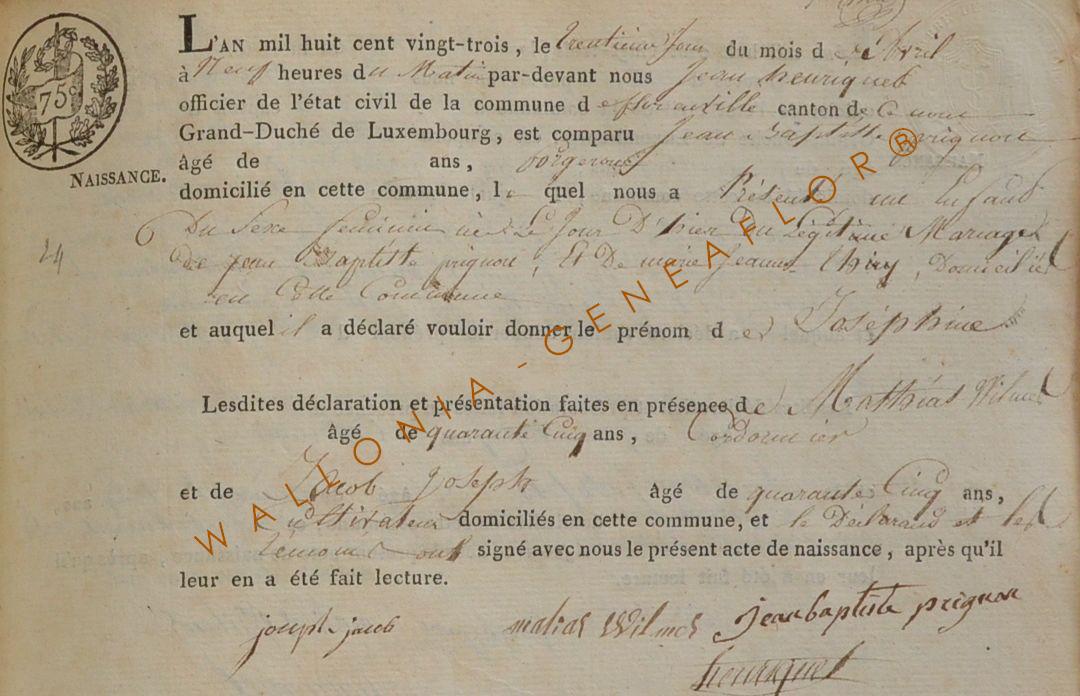 75c
L'AN mil huit cent vingt-trois, le trentieme jour du mois d'Avril
à Neuf heures du Matin par-devant nous Jean henriquet
officier de l'état civil de la commune de florenville canton de
Grand-Duché de Luxembourg, est comparu Jean Baptiste prignon
âgé de ans, forgeron
NAISSANCE.
domicilié en cette commune, le quel nous a Présenté un Enfant
24
Du Sexe feminin né Le Jour D'hier Du Légitime Mariage
De Jean Baptiste prignon, Et De marie Jeanne thiry, Domiciliés
en Cette Commune
et auquel il a déclaré vouloir donner le prénom de Joséphine
Lesdites déclaration et présentation faites en présence de Matthias Wilmes
âgé de quarante Cinq ans, Cordonnier
et de Jacob Joseph âgé de quarante Cinq ans,
cultivateur domiciliés en cette commune, et le Déclarant et les
témoins ont signé avec nous le présent acte de naissance, après qu'il
leur en a été fait lecture.
joseph jacob matias Wilmes Jean baptiste prignon
henriquet
WALLONIA - GENEAFLOR®